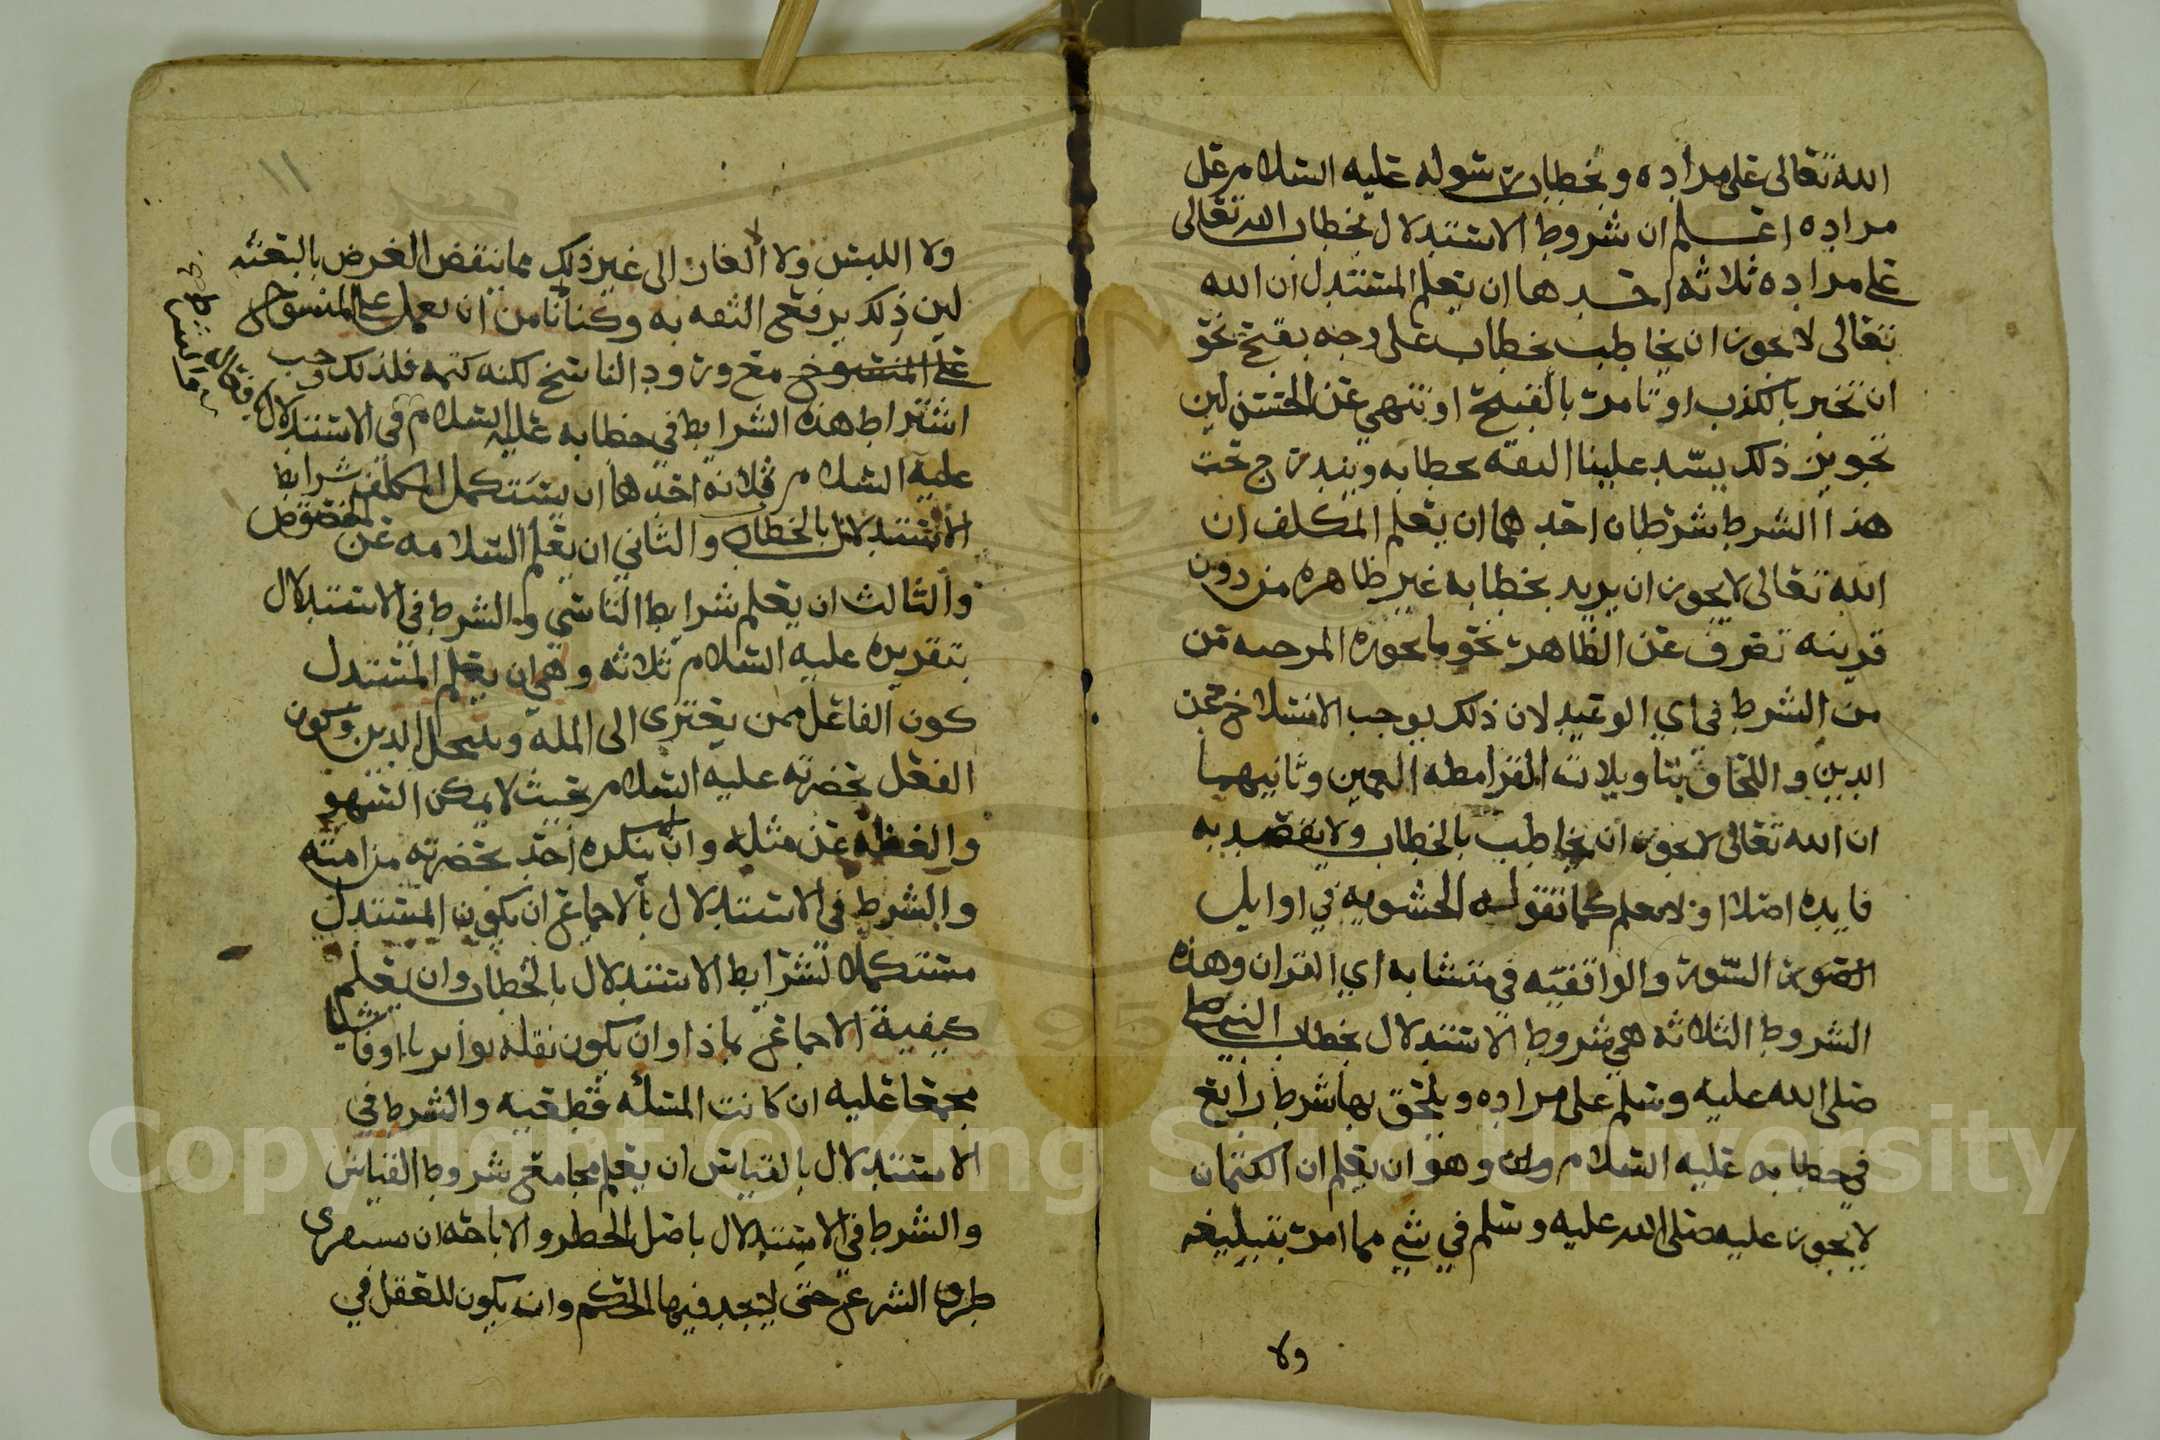 الله تعالى على مراده وبخطاب رسوله عليه السلام على
مراده اعلم ان شروط الاستدلال بخطاب الله تعالى
على مراده ثلاثه احدها ان يعلم المستدل ان الله
تعالى لا يجوز ان يخاطب بخطاب على وجه يقبح نحو
ان يخبر بالكذب او يامر بالقبيح او ينهى عن الحسن لين
تجويز ذلك يسد علينا الثقه بخطابه ويندرج تحت
هذا الشرط شرطان احدهما ان يعلم المكلف ان
الله تعالى لا يجوز ان يريد بخطابه غير ظاهره من دون
قرينه تصرف عن الظاهر نحو ما يجوزه المرجيه من
من الشرط في اي الوعيد لان ذلك يوجب الانسلاخ عن
الدين واللحاق بتاويلات القرامطه العمين وثانيهما
ان الله تعالى لا يجوز ان يخاطب بالخطاب ولا يقصد به
فايده اصلا او لا تعلم كما تقوله الحشويه في اوايل
السور والواقفيه في متشابه اي القران وهذه
الشروط الثلاثه هي شروط الاستدلال بخطاب النبي
صلى الله عليه وسلم على مراده ويلحق بها شرط رابع
في خطابه عليه السلام وهو ان يعلم ان الكتمان
لا يجوز عليه صلى الله عليه وسلم في شي مما امر بتبليغه
ولا
١١
ولا اللبس ولا الغاز الى غير ذلك مما ينقض الغرض بالبعثه
لين ذلك يرفع الثقه به وكنا نامن ان يعمل على المنسوخ
على المنسوخ مع ورود الناسخ لكنه كتمه فلذلك وجب
اشتراط هذه الشرايط في خطابه عليه السلام في الاستدلال
عليه السلام ثلاثه احدها ان يستكمل المكلف شرايط
الاستدلال بالخطاب والثاني ان يعلم السلامه عن المخصوص
والثالث ان يعلم شرايط التاسي والشرط في الاستدلال
بتقريره عليه السلام ثلاثه وهي ان يعلم المستدل
كون الفاعل ممن يعتزي الى المله وينتحل الدين وكون
الفعل بحضرته عليه السلام بحيث لا يمكن السهو
والغفله عن مثله وان ينكره احد بحضرته من امته
والشرط في الاستدلال بالاجماع ان يكون المستدل
مستكملا لشرايط الاستدلال بالخطاب وان يعلم
كيفية الاجماع بماذا وان يكون نقله تواتريا او فاشيا
مجمعا عليه ان كانت المسله قطعيه والشرط في
الاستدلال بالقياس ان يعلم مجامع شروط القياس
والشرط في الاستدلال باصل الحظر والاباحه ان يستقري
طرق الشرع حتى لا يجد فيها الحكم وانه يكون للعقل في